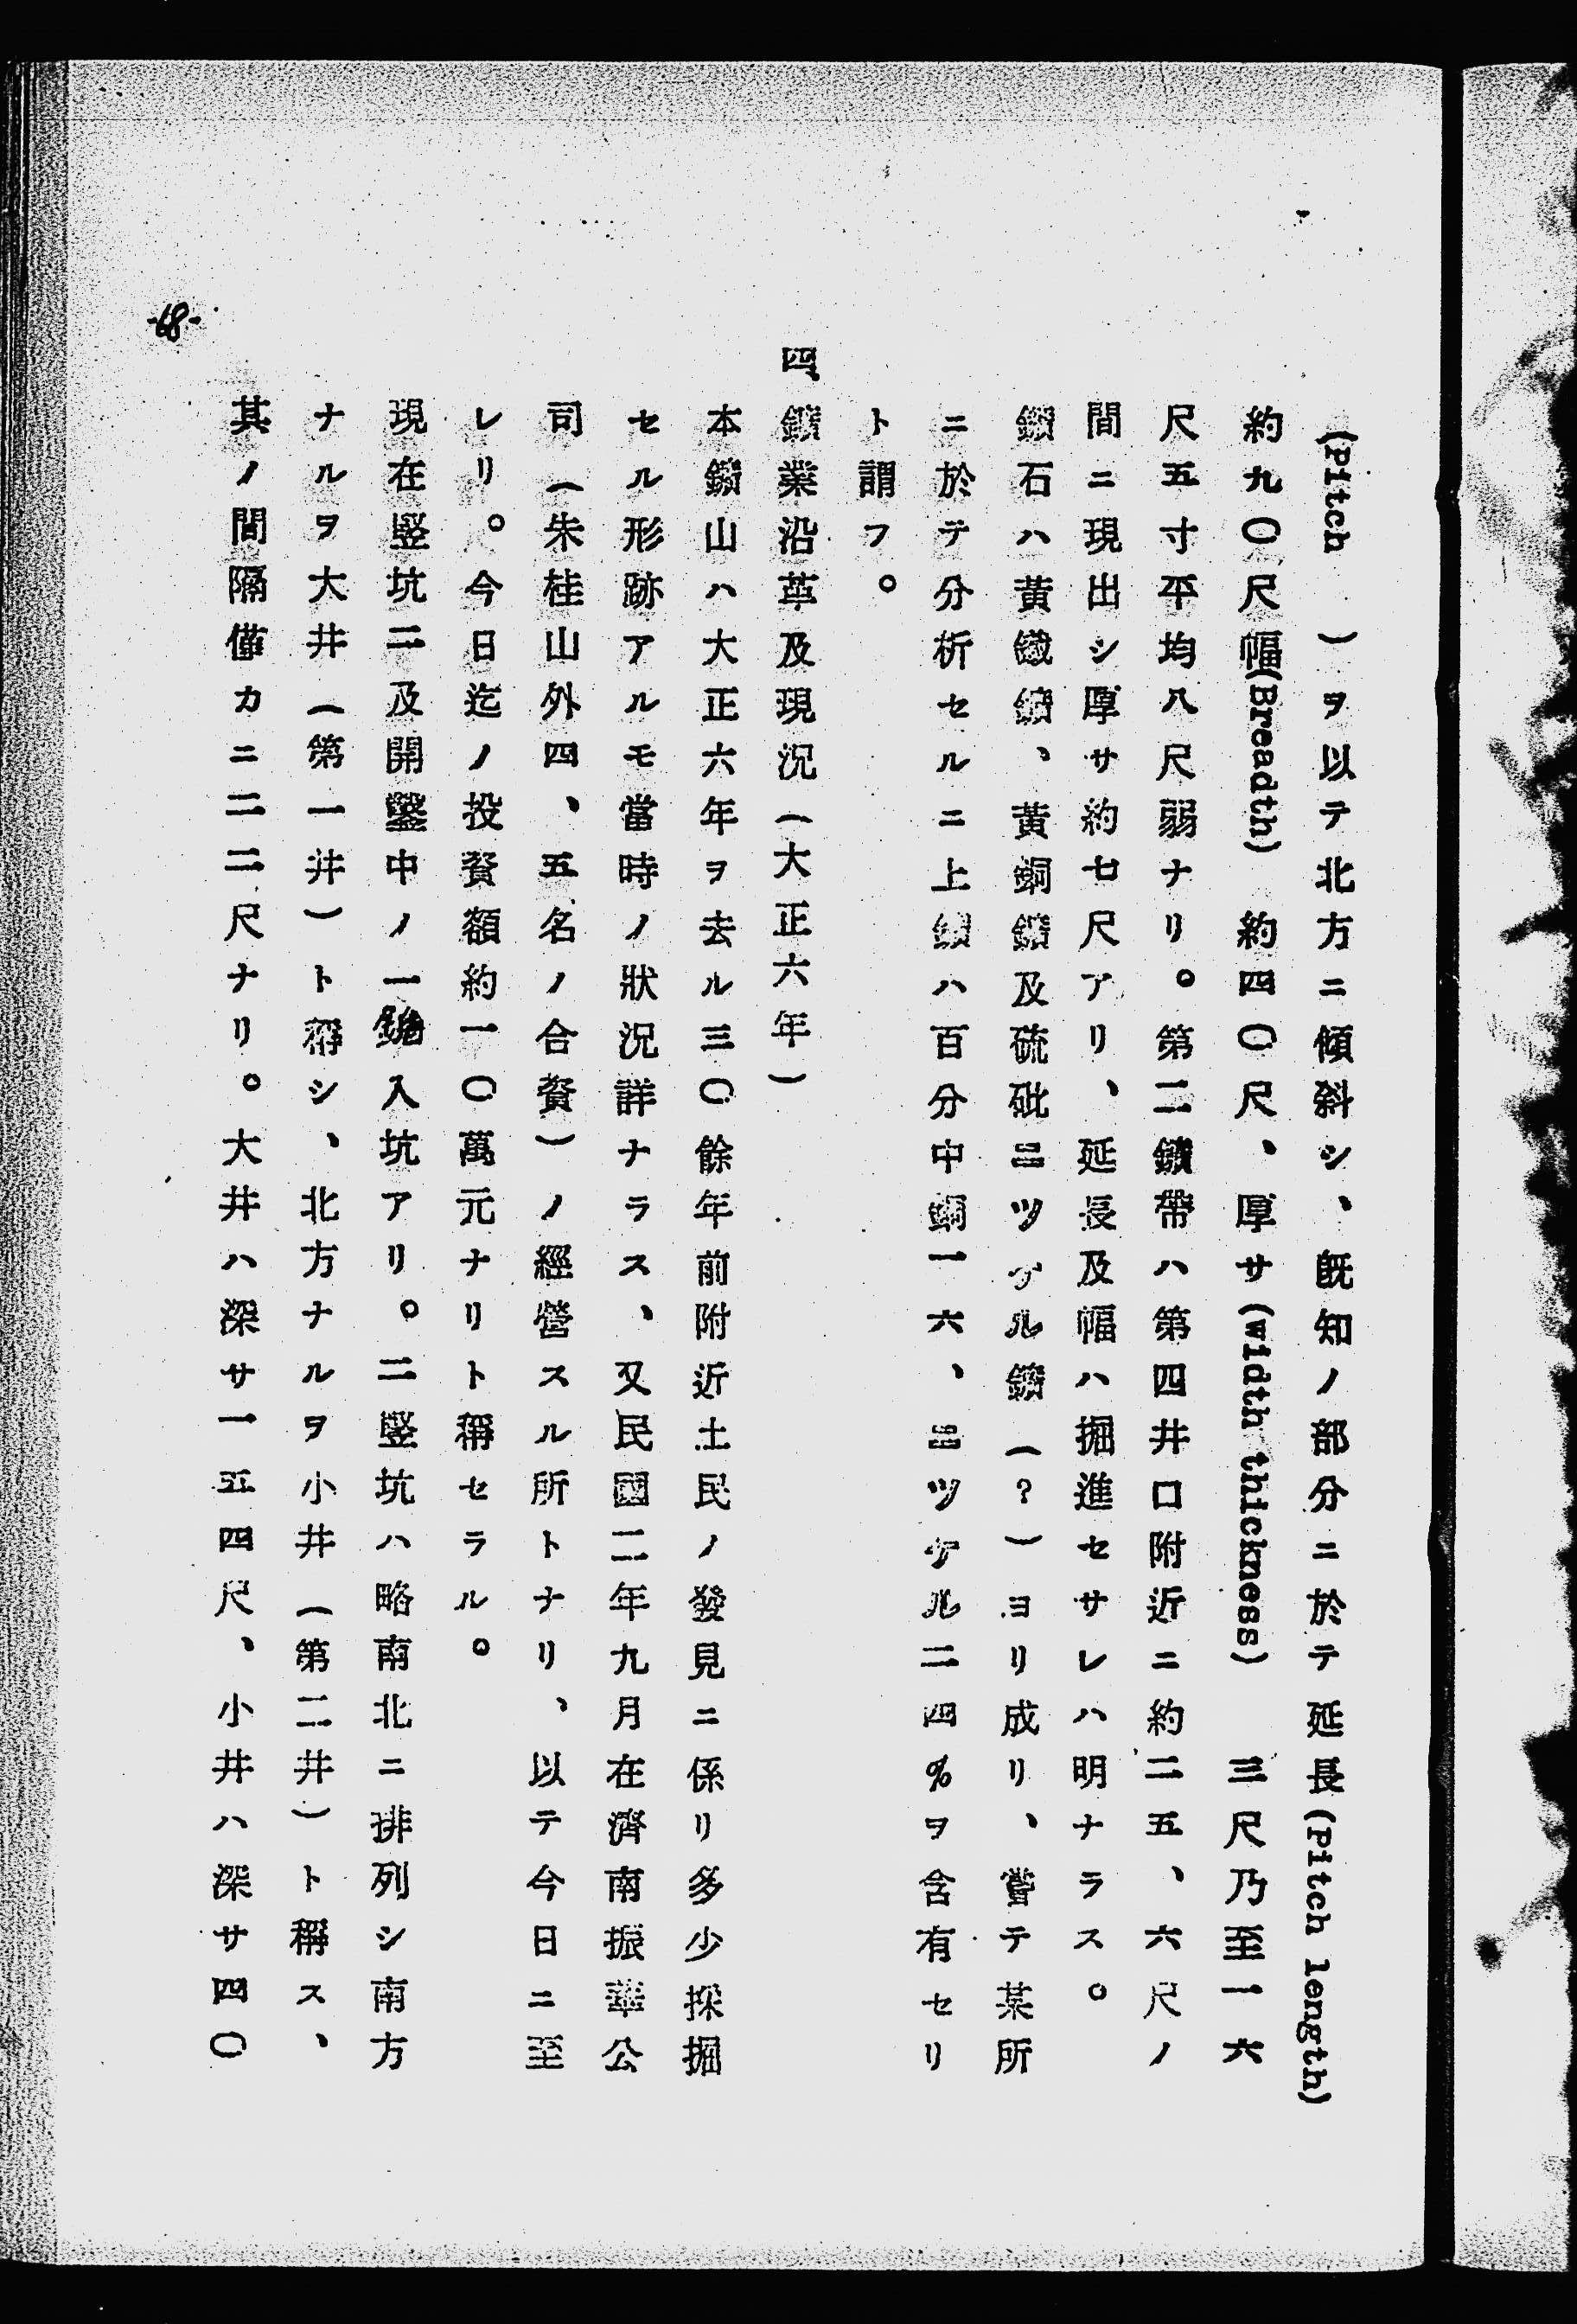 (Pitch )ヲ以テ北方ニ傾斜シ、既知ノ部分ニ於テ延長(Pitch length)
約九〇尺幅(Breadth) 約四〇尺、厚サ(width thickness) 三尺乃至一六
尺五寸平均八尺弱ナリ。第二鑛帶ハ第四井口附近ニ約二五、六尺ノ
間ニ現出シ厚サ約七尺アリ、延長及幅ハ掘進セサレハ明ナラス。
鑛石ハ黃鐵鑛、黃銅鑛及硫砒ニツケル鑛(?)ヨリ成リ、嘗テ某所
ニ於テ分析セルニ上鑛ハ百分中銅一六、ニツケル二四%ヲ含有セリ
ト謂フ。
四、鑛業沿革及現況(大正六年)
本鑛山ハ大正六年ヲ去ル三〇餘年前附近土民ノ發見ニ係リ多少採掘
セル形跡アルモ當時ノ狀況詳ナラス、又民國二年九月在濟南振華公
司(朱桂山外四、五名ノ合資)ノ經營スル所トナリ、以テ今日ニ至
レリ。今日迄ノ投資額約一〇萬元ナリト稱セラル。
現在竪坑二及開鑿中ノ一鎚入坑アリ。二竪坑ハ略南北ニ排列シ南方
ナルヲ大井(第一井)ト稱シ、北方ナルヲ小井(第二井)ト稱ス、
其ノ間隔僅カニ二二尺ナリ。大井ハ深サ一五四尺、小井ハ深サ四〇
-68-